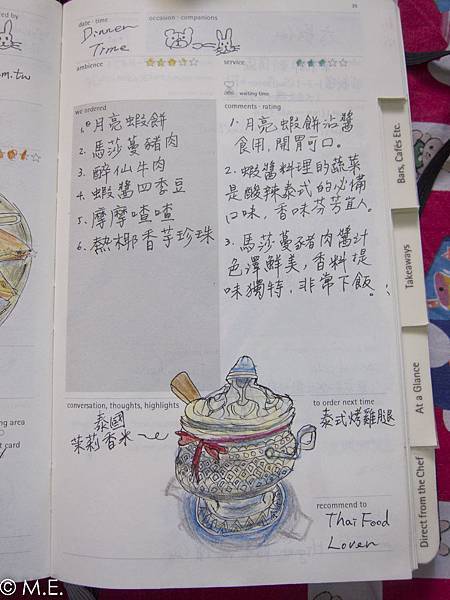 ed by
35
date · time
occasion · companions
Dinner
Time
m.tw
ambience
service
waiting time
we ordered
comments · rating
1. 月亮蝦餅
2. 馬莎蔓豬肉
3. 醉仙牛肉
4. 蝦醬四季豆
5. 摩摩喳喳
6. 熱椰香芋珍珠
1. 月亮蝦餅沾醬
食用, 開胃可口。
2. 蝦醬料理的蔬菜
是酸辣泰式的必備
口味, 香味芬芳宜人。
3. 馬莎蔓豬肉醬汁
色澤鮮美, 香料提
味獨特, 非常下飯。
conversation, thoughts, highlights
to order next time
泰國
茉莉香米
泰式烤雞腿
recommend to
Thai Food
Lover
ing area
t card
Bars, Cafés Etc.
Takeaways
At a Glance
Direct from the Chef
© M.E.